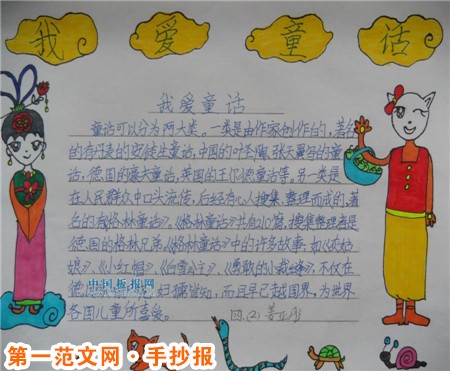 我 爱 童 话
我爱童话
童话可以分为两大类。一类是由作家创作的,著名
的有丹麦的安徒生童话,中国的叶圣陶、张天翼写的童
话,德国的豪夫童话,英国的王尔德童话等。另一类是
在人民群众中口头流传,后经有心人搜集、整理而成的,著
名的有《格林童话》。《格林童话》共 搜集整理者是
德国的格林兄弟。《格林童话》中的许多故事,如《灰姑
娘》、《小红帽》、《白雪公主》、《勇敢的小裁缝》,不仅在
德国 妇孺皆知,而且早已越国界,为世界
各国儿童所喜爱。
四.(2)
中国板报网
第一范文网·手抄报